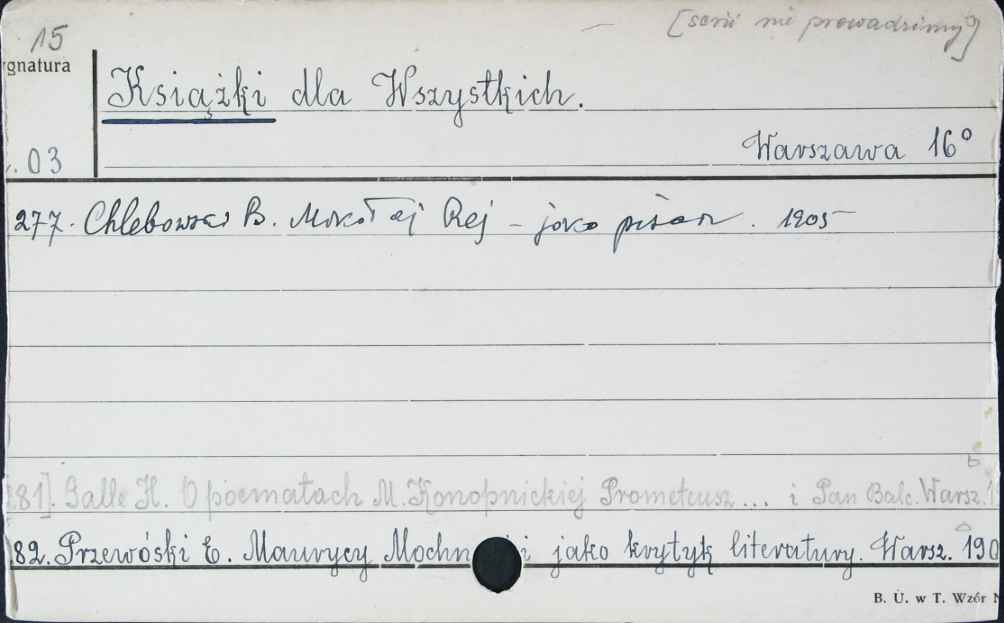 15
[serii nie prowadzimy]
gnatura
Książki dla Wszystkich.
Warszawa 16°
. 03
277. Chlebowski B. Mikołaj Rej – jako pisarz. 1905
81]. Galle H. O poematach M. Konopnickiej Prometeusz... i Pan Balc. Warsz. 1
82. Przewóski E. Maurycy Mochn ki jako krytyk literatury. Warsz. 190
B. U. w T. Wzór N